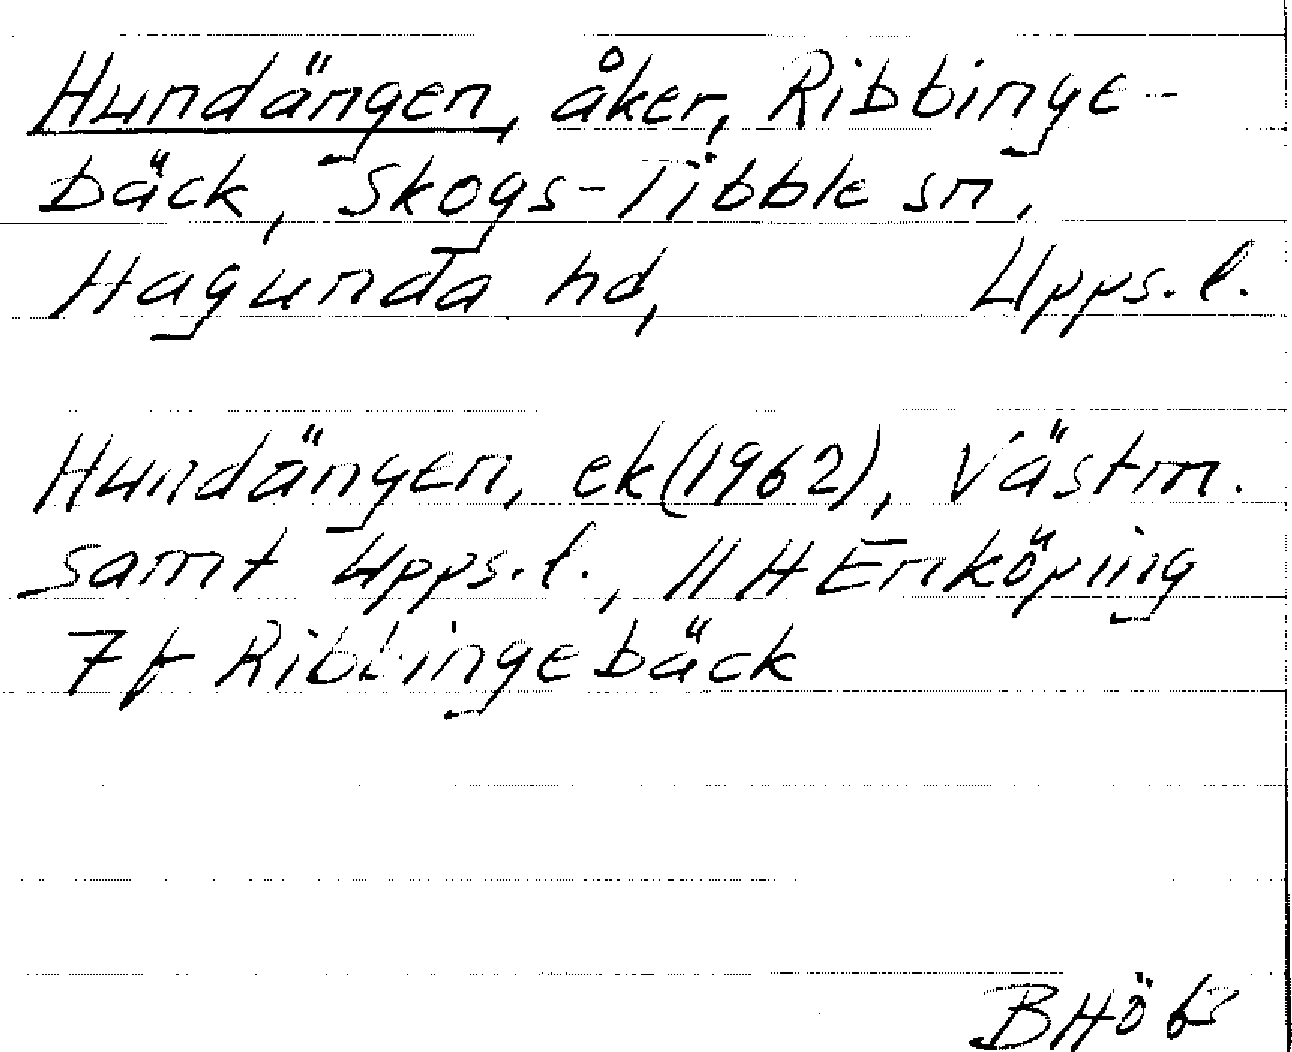 Hundängen, åker, Ribbinge-
bäck, Skogs-Tibble sn,
Hagunda hd, Upps.l.
Hundängen, ek(1962), Västm.
samt Upps.l., 11H Enköping
7f Ribbingebäck
BHö